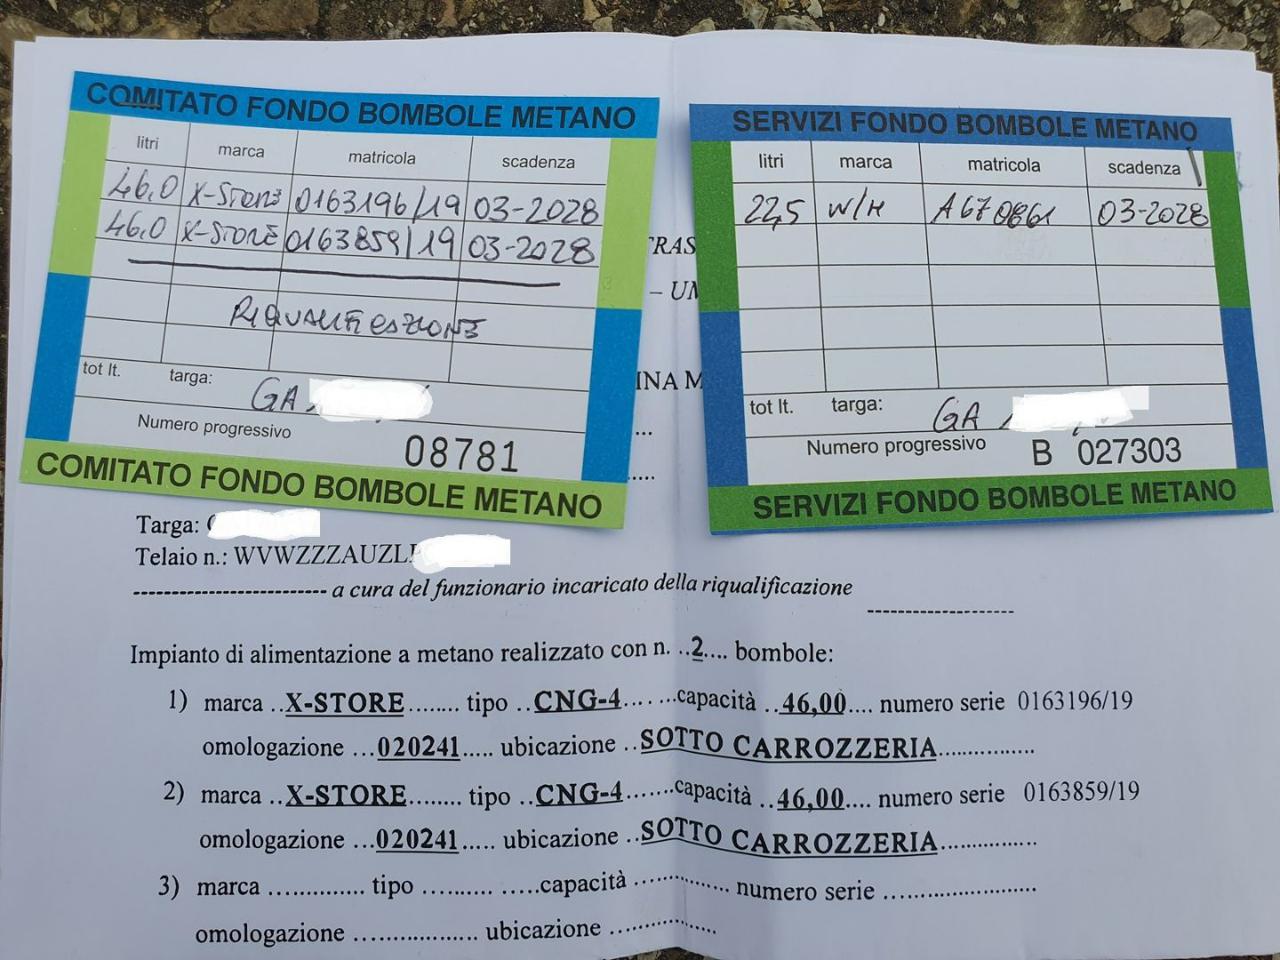 COMITATO FONDO BOMBOLE METANO
litri marca matricola scadenza
46,0 X-STORE 0163196/19 03-2028
46,0 X-STORE 0163859/19 03-2028
RIQUALIFICAZIONE
tot lt. targa: GA
Numero progressivo 08781
COMITATO FONDO BOMBOLE METANO
SERVIZI FONDO BOMBOLE METANO
litri marca matricola scadenza
22,5 W/H A670861 03-2028
tot lt. targa: GA
Numero progressivo B 027303
SERVIZI FONDO BOMBOLE METANO
TRAS
– UM
INA M
Targa:
Telaio n.: WVWZZZAUZL
-------------------------- a cura del funzionario incaricato della riqualificazione -------------------
Impianto di alimentazione a metano realizzato con n. ..2.... bombole:
1) marca ..X-STORE........ tipo ..CNG-4.... ...capacità ..46,00.... numero serie 0163196/19
omologazione ...020241..... ubicazione ..SOTTO CARROZZERIA...............
2) marca ..X-STORE........ tipo ..CNG-4.......capacità ..46,00.... numero serie 0163859/19
omologazione ...020241..... ubicazione ..SOTTO CARROZZERIA...............
3) marca ............. tipo .......... .....capacità ............... numero serie .........................
omologazione ................... ubicazione .................